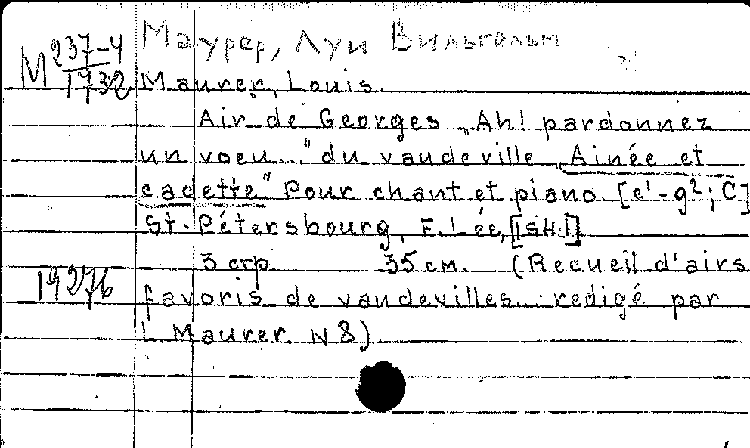 Маурер, Луи Вильгельм
М 237-4
1732
Maurer, Louis.
Air de Georges „Ah! pardonnez
un voeu..." du vaudeville „Ainée et
cadette" Pour chant et piano [e'-g²; C]
St.-Pétersbourg, F. Lée, [
3 стр. 35 см. (Recueil d'airs
19276
favoris de vaudevilles... redigé par
L. Maurer. N 8)